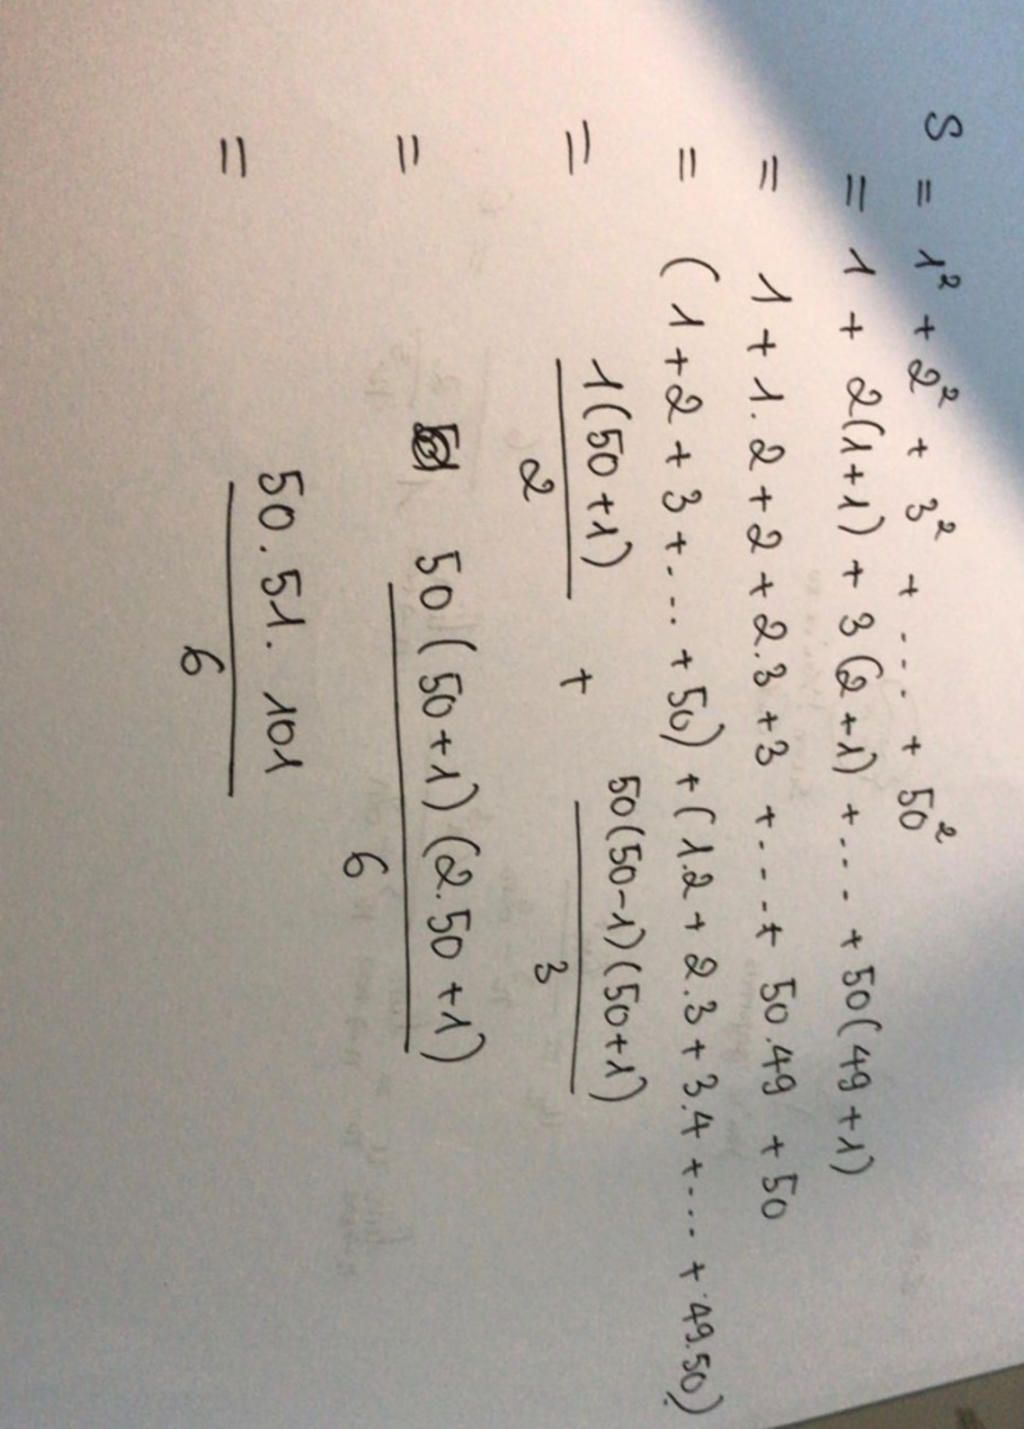 S = 1² + 2² + 3² + ... + 50²
= 1 + 2(1+1) + 3(2+1) + ... + 50(49+1)
= 1 + 1.2 + 2 + 2.3 + 3 + ... + 50.49 + 50
= (1 + 2 + 3 + ... + 50) + (1.2 + 2.3 + 3.4 + ... + 49.50)
= 1(50+1)/2 + 50(50-1)(50+1)/3
= 50(50+1)(2.50+1)/6
= 50.51.101/6